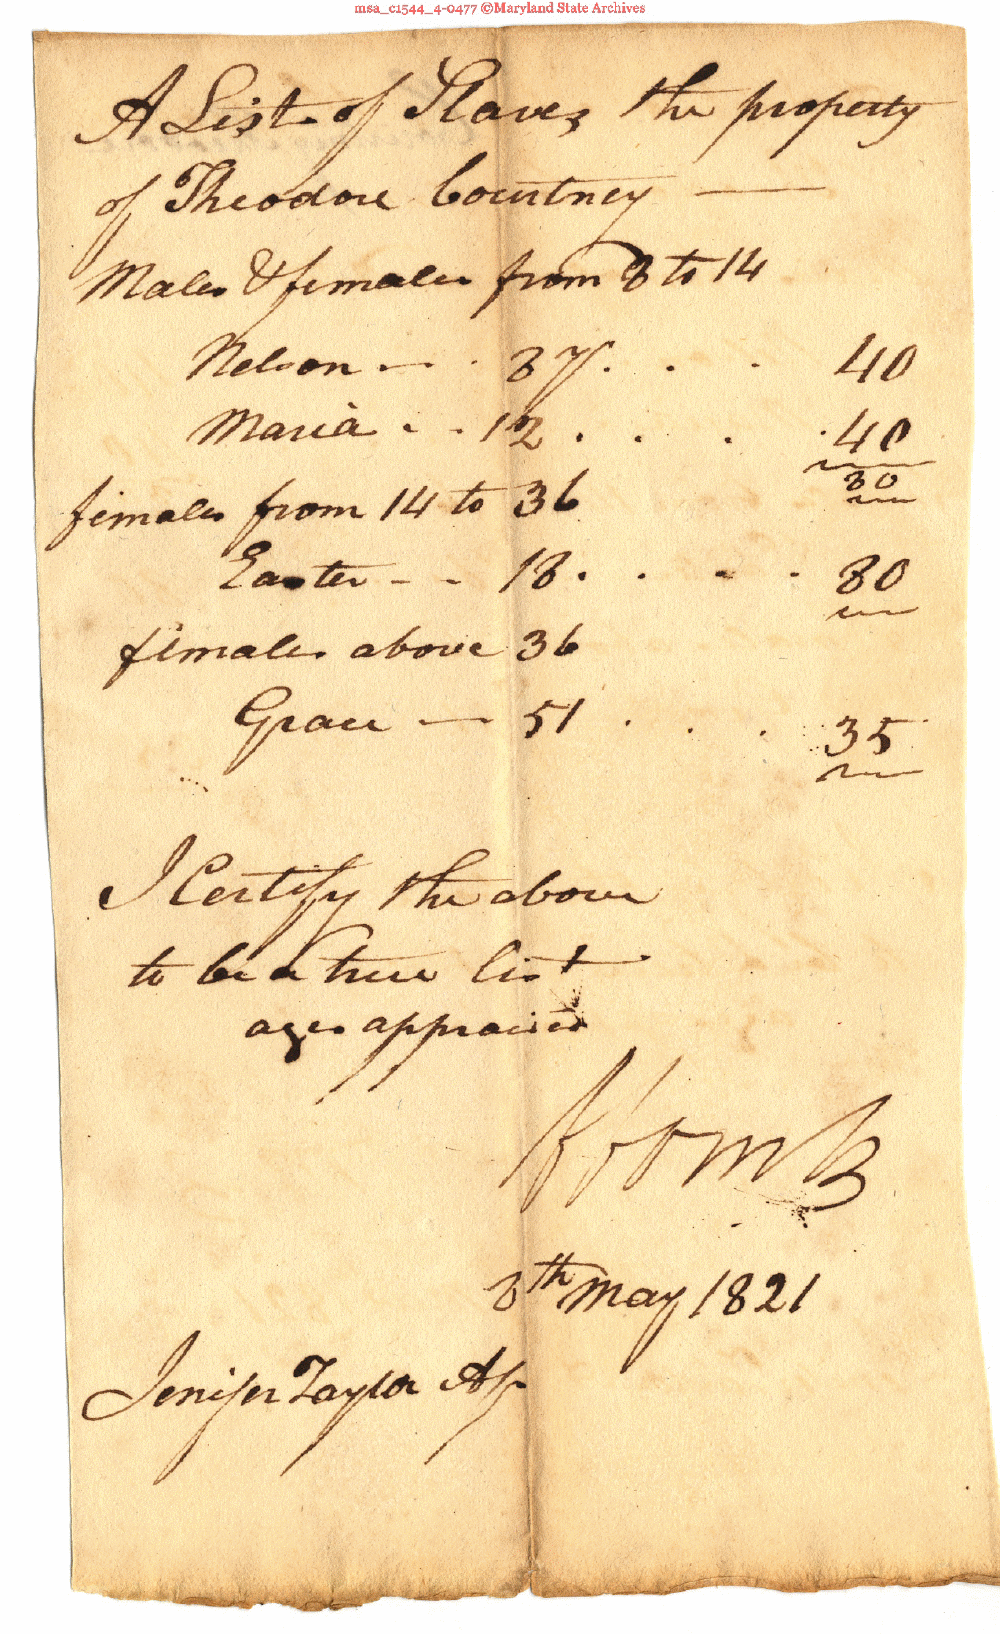 msa_c1544_4-0477 ©Maryland State Archives
A List of Slaves the property
of Theodore Courtney —
Males & females from 8 to 14
Nelson — . 8 y. . . 40
Maria . . 12 . . . . 40
80
females from 14 to 36
Easter - - 18 . . - . 80
females above 36
Grace — 51 . . . 35
I Certify the above
to be a true list
ages appraised
8th May 1821
Jenifer Taylor